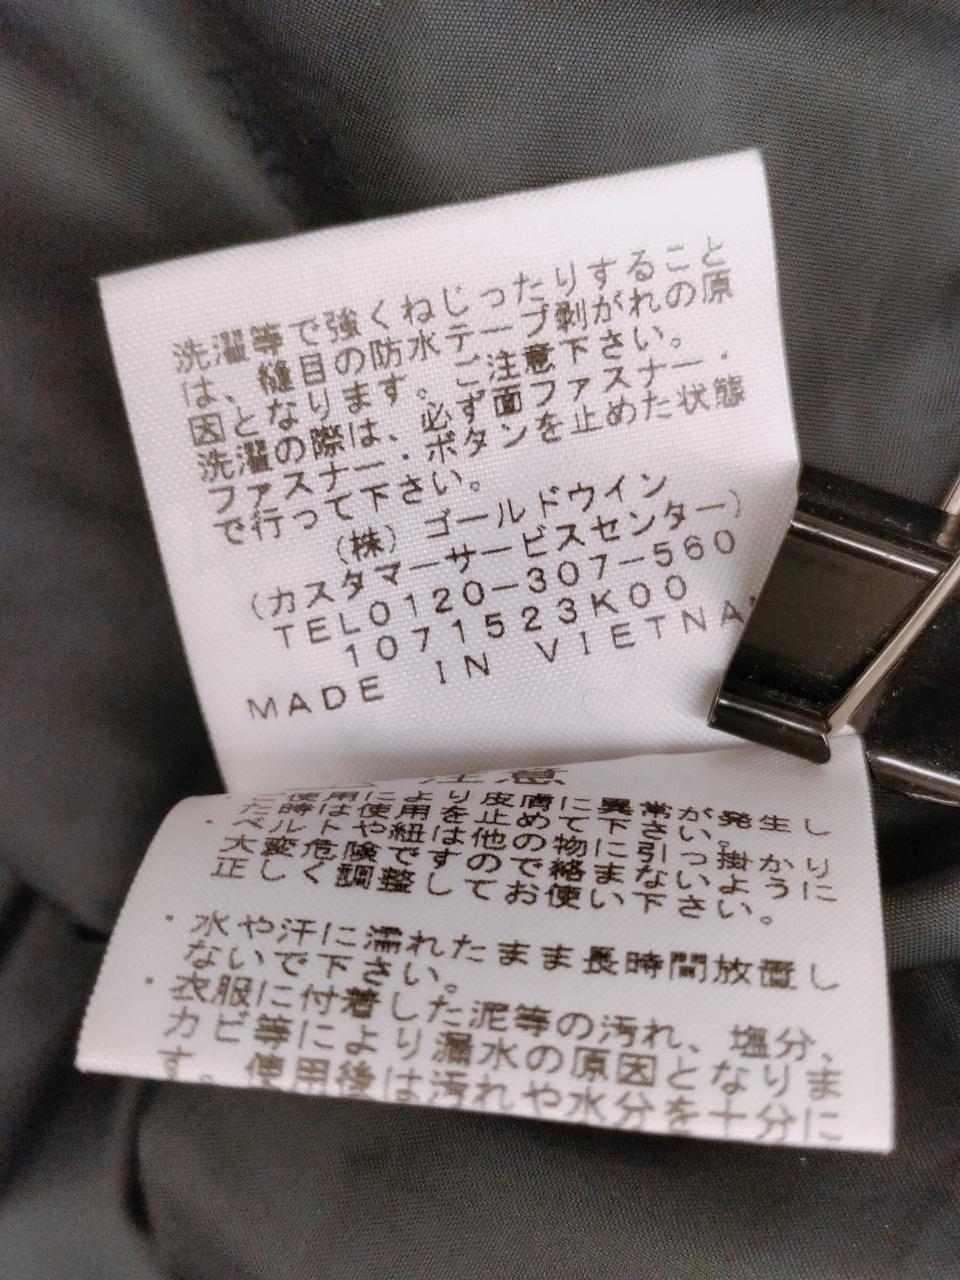 洗濯等で強くねじったりすること
は、縫目の防水テープ剥がれの原
因となります。ご注意下さい。
洗濯の際は、必ず面ファスナー・
ファスナー・ボタンを止めた状態
で行って下さい。
(株)ゴールドウイン
(カスタマーサービスセンター)
TEL0120-307-560
1071523K00
MADE IN VIETNA
注意
使用により皮膚に異常が発生し
た時は使用を止めて下さい。
・ベルトや紐は他の物に引っ掛かり
大変危険ですので絡まないように
正しく調整してお使い下さい。
・水や汗に濡れたまま長時間放置し
ないで下さい。
・衣服に付着した泥等の汚れ、塩分、
カビ等により漏水の原因となりま
す。使用後は汚れや水分を十分に